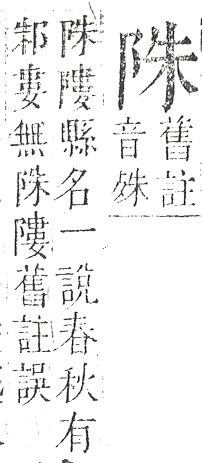 陎
舊註
音殊
陎䧢縣名一說春秋有
邾婁無陎䧢舊註誤